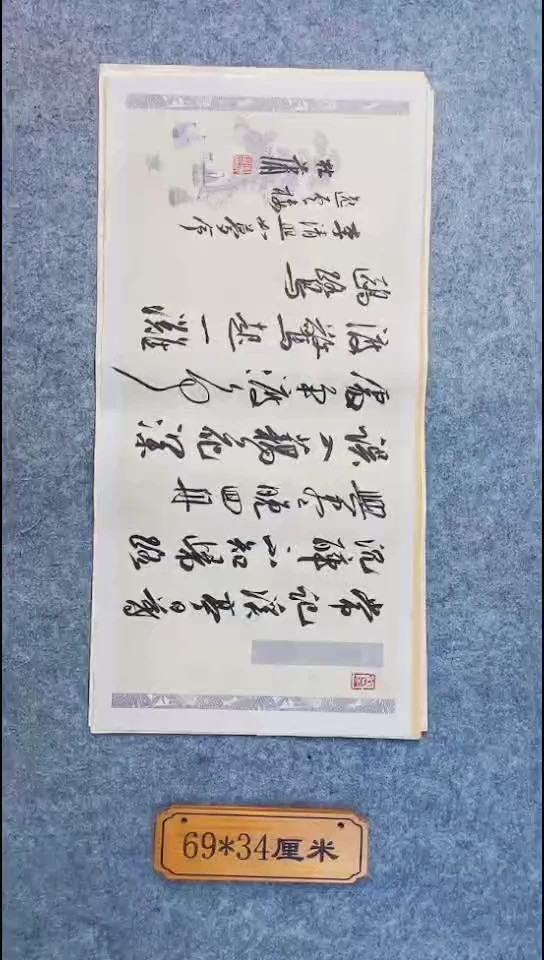 常记溪亭日暮
沉醉不知归路
兴尽晚回舟
误入藕花深
处争渡争
渡惊起一滩
鸥鹭
李清照如梦令
69*34厘米